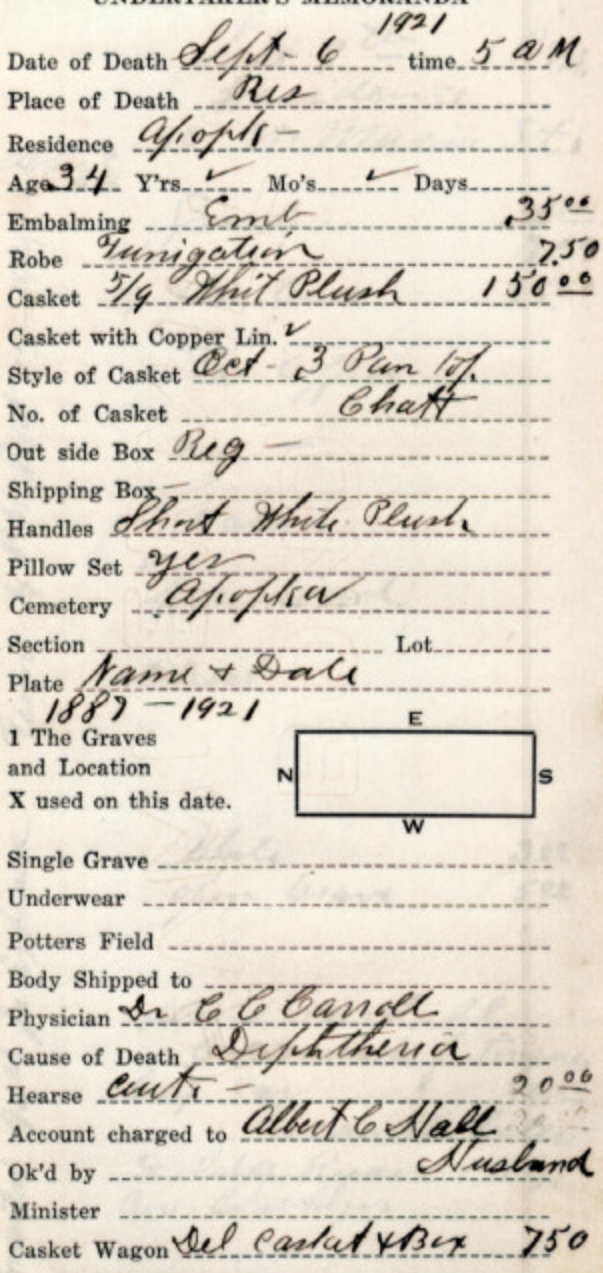 UNDERTAKER'S MEMORANDA
1921
Date of Death Sept - 6 time 5 a M
Place of Death Res
Residence Apopk -
Age 34 Y'rs ✓ Mo's ✓ Days
Embalming Emb 35 00
Robe Fumigation 7.50
Casket 5/9 Whit Plush 150 00
Casket with Copper Lin. ✓
Style of Casket Oct - 3 Pan
No. of Casket Chatt
Out side Box Reg -
Shipping Box -
Handles Short White Plush
Pillow Set yes
Cemetery Apopka
Section Lot
Plate Name + Date
1887 - 1921
E
1 The Graves
and Location
X used on this date.
N S
W
Single Grave
Underwear
Potters Field
Body Shipped to
Physician Dr C C Carroll
Cause of Death Diphtheria
Hearse auto - 20 00
Account charged to Albert C Hall
Husband
Ok'd by
Minister
Casket Wagon Del Casket & Box 7 50